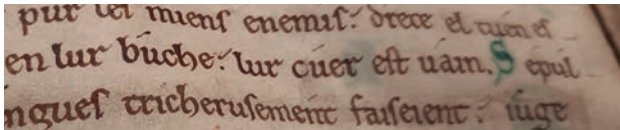 pur lei miens enemis. drece el tuen es
en lur buche. lur cuer est uain. S epul
ngues tricherusement faiseient. iuge